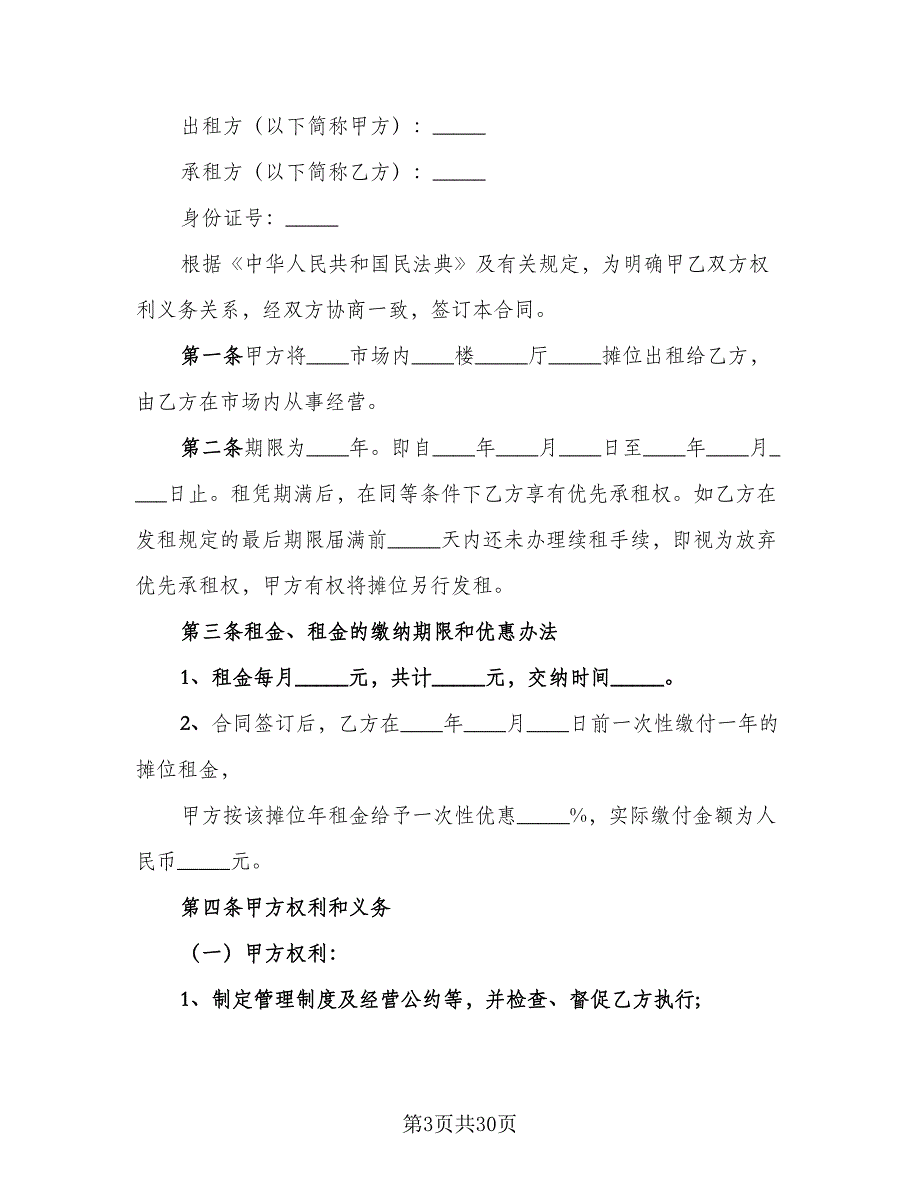 出租方（以下简称甲方）：_____
承租方（以下简称乙方）：_____
身份证号：_____
根据《中华人民共和国民法典》及有关规定，为明确甲乙双方权
利义务关系，经双方协商一致，签订本合同。
第一条甲方将____市场内____楼_____厅_____摊位出租给乙方，
由乙方在市场内从事经营。
第二条期限为____年。即自____年____月____日至____年____月_
___日止。租凭期满后，在同等条件下乙方享有优先承租权。如乙方在
发租规定的最后期限届满前_____天内还未办理续租手续，即视为放弃
优先承租权，甲方有权将摊位另行发租。
第三条租金、租金的缴纳期限和优惠办法
1、租金每月_____元，共计_____元，交纳时间_____。
2、合同签订后，乙方在____年____月____日前一次性缴付一年的
摊位租金，
甲方按该摊位年租金给予一次性优惠_____%，实际缴付金额为人
民币_____元。
第四条甲方权利和义务
（一）甲方权利：
1、制定管理制度及经营公约等，并检查、督促乙方执行;
第3页共30页